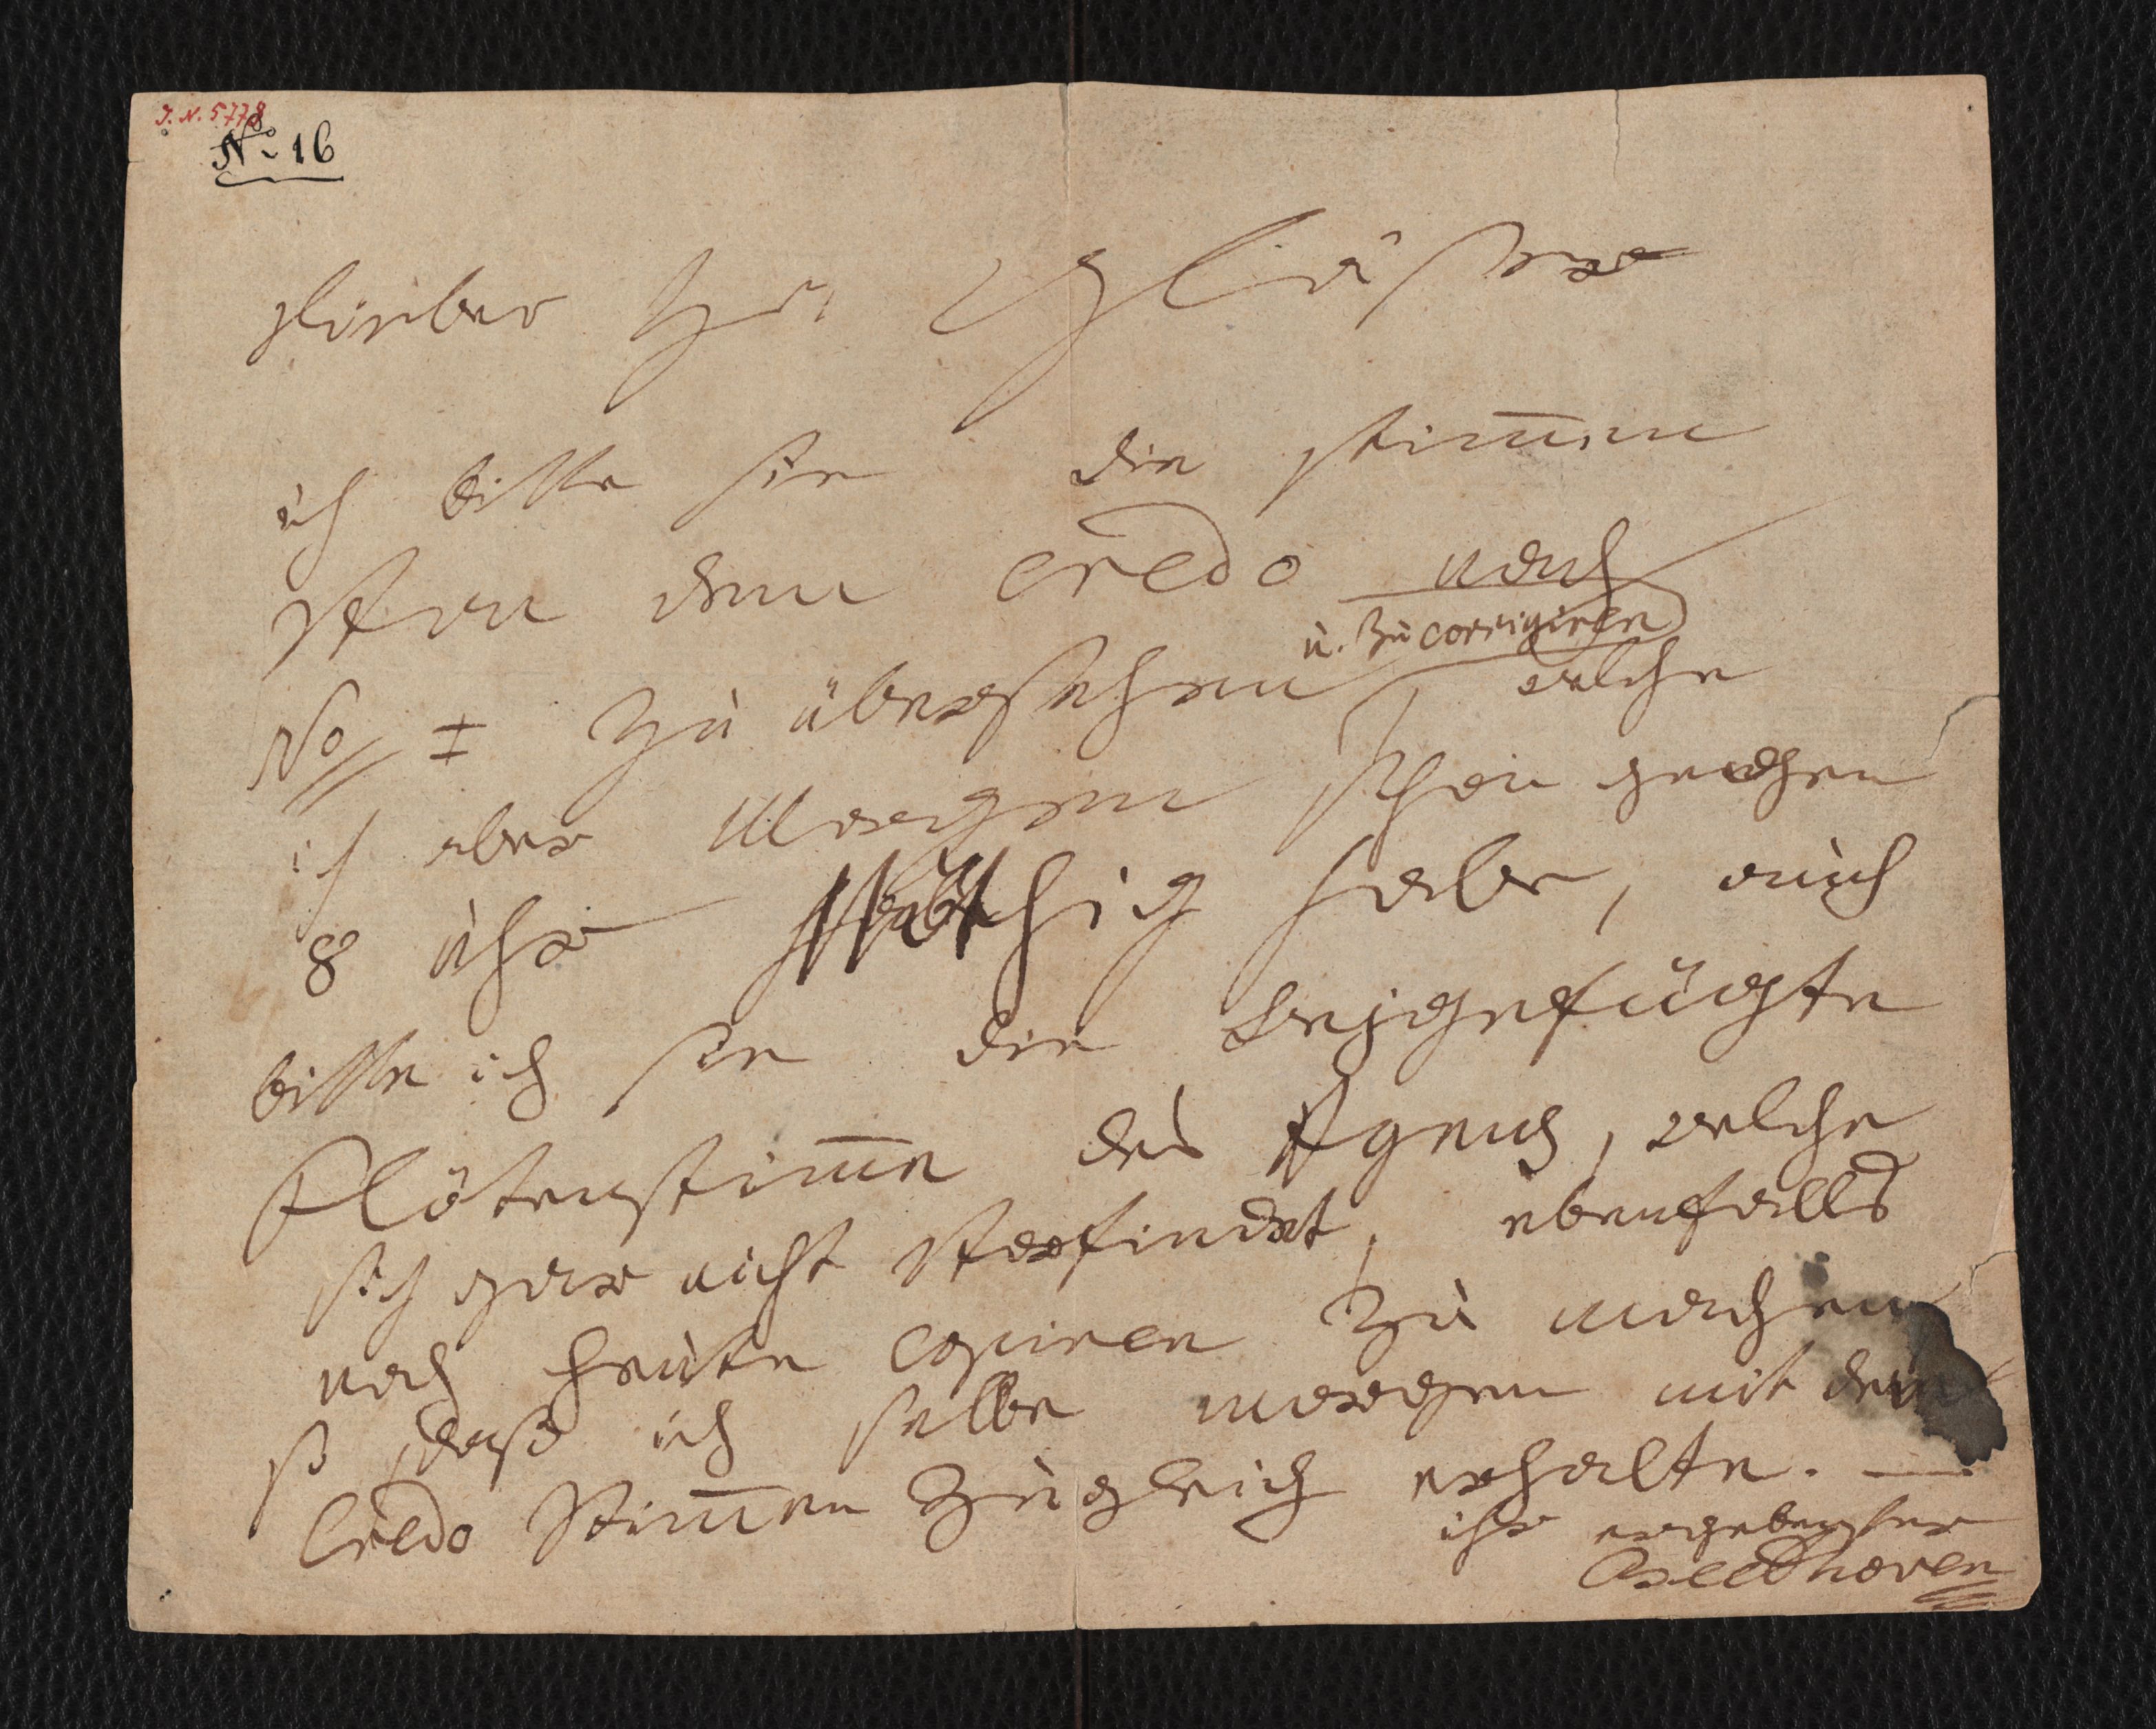 J. N. 5778
No 16
lieber Hr. Gläser
ich bitte sie die stim̅en
von dem credo nach
No I zu übersehen u. zu corrigiren, welche
ich aber Morgen schon gegen
8 uhr Nöthig habe, auch
bitte ich sie die beygefügte
Flötenstim̅e des Agnus, welche
sich gar nicht vorfindet, ebenfalls
noch heute copiren zu machen
so daß ich selbe morgen mit den
Credo Stim̅en zugleich erhalte. —
ihr ergebenster
Beethoven